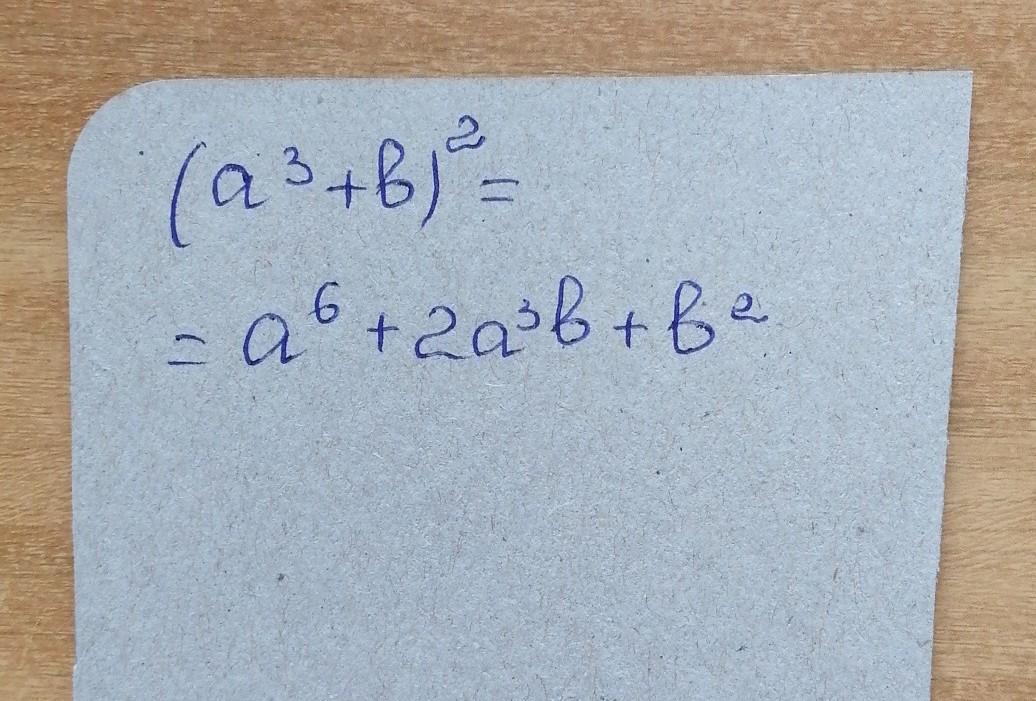 (a³+b)²=
=a⁶+2a³b+b²